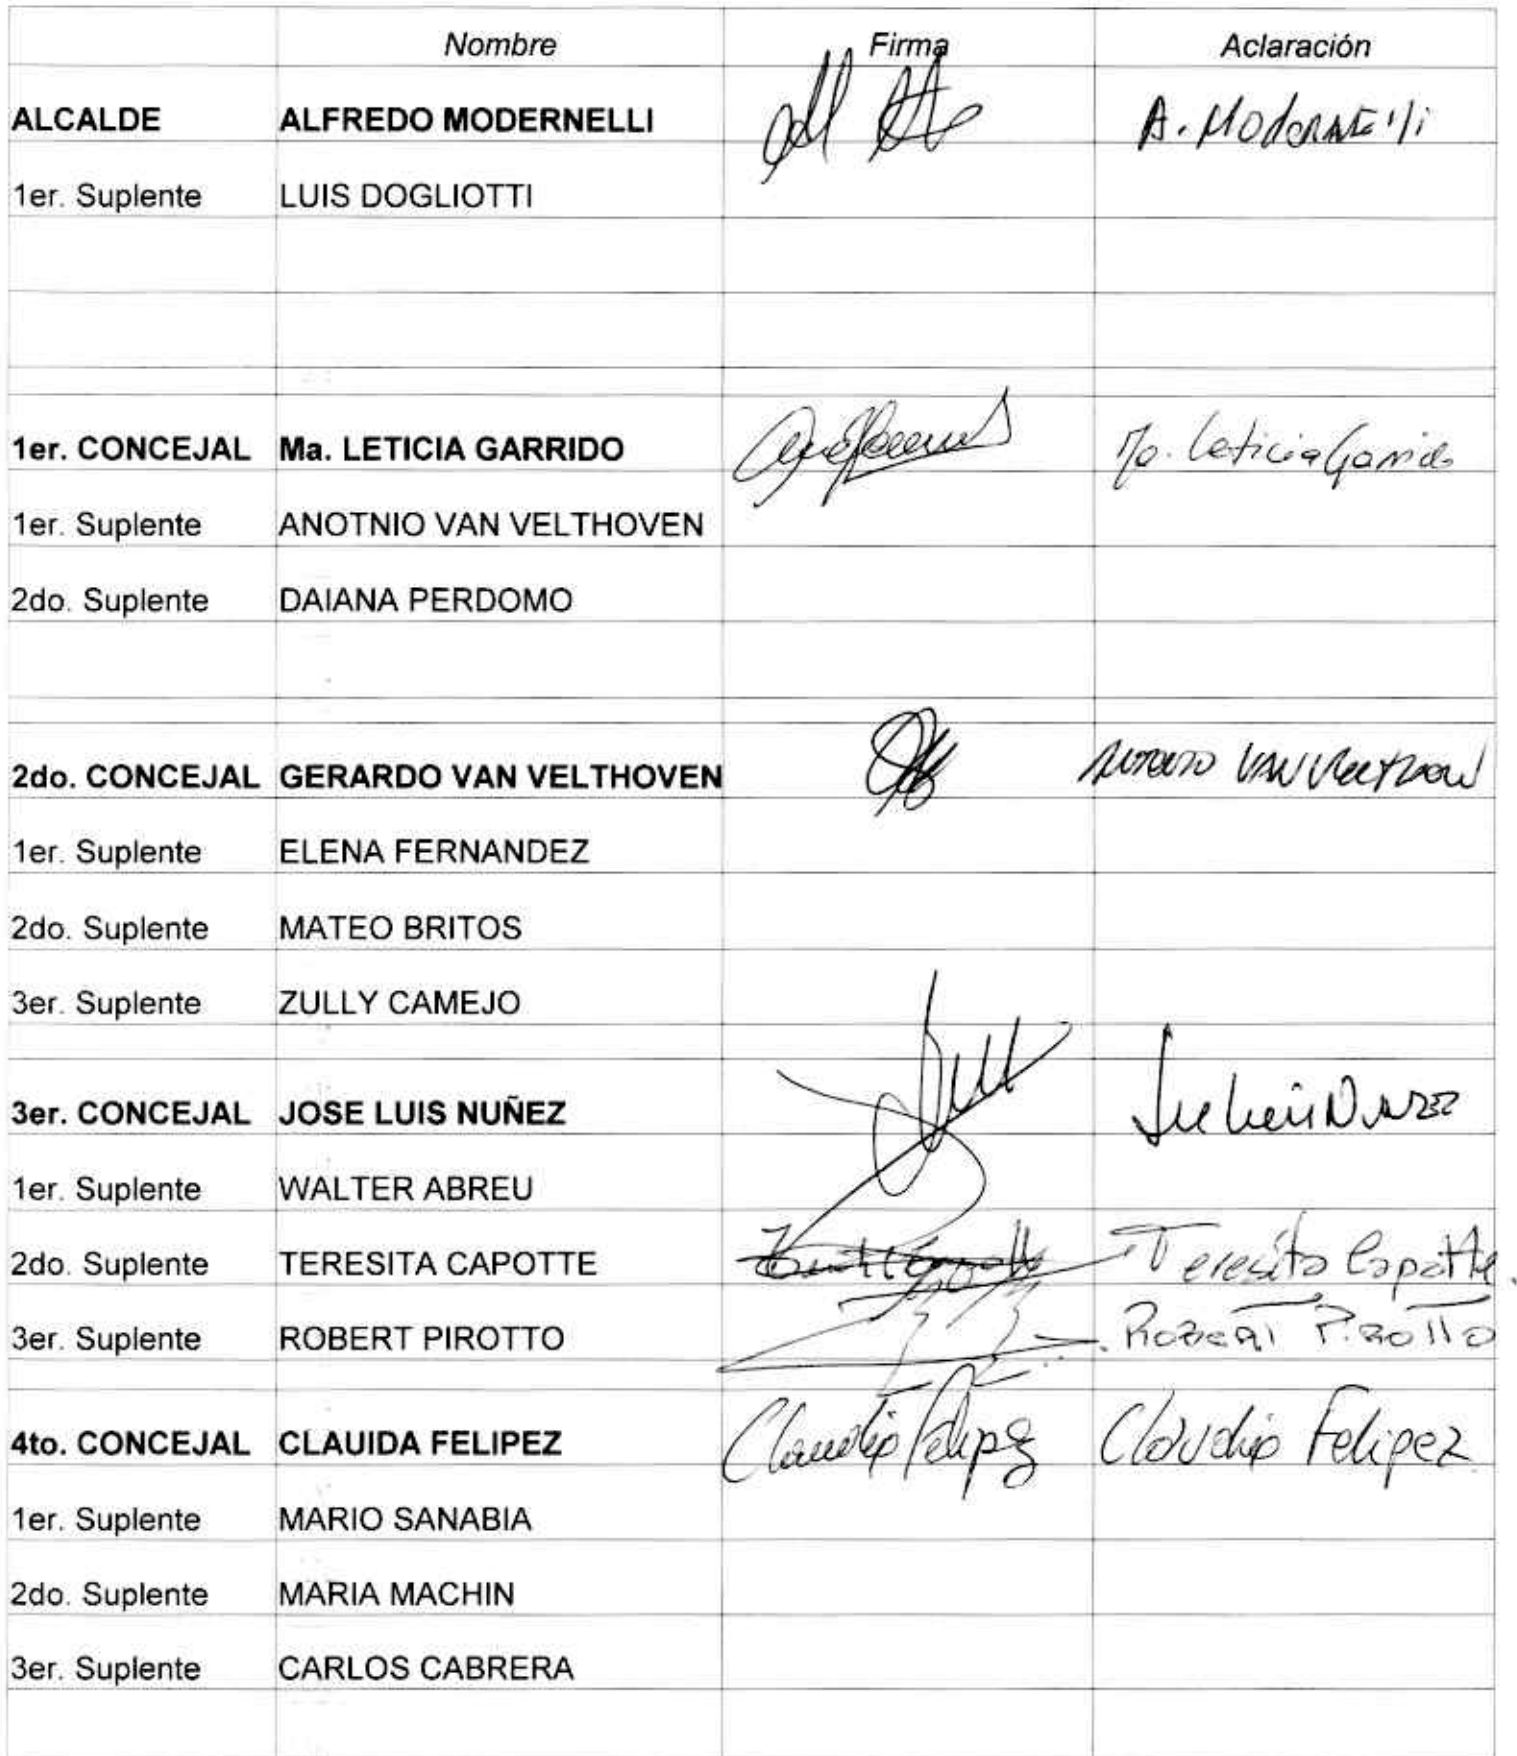 Nombre Firma Aclaración
ALCALDE ALFREDO MODERNELLI A. Modernelli
1er. Suplente LUIS DOGLIOTTI
1er. CONCEJAL Ma. LETICIA GARRIDO Ma. Leticia Garrido
1er. Suplente ANOTNIO VAN VELTHOVEN
2do. Suplente DAIANA PERDOMO
2do. CONCEJAL GERARDO VAN VELTHOVEN VAN VELTHOVEN
1er. Suplente ELENA FERNANDEZ
2do. Suplente MATEO BRITOS
3er. Suplente ZULLY CAMEJO
3er. CONCEJAL JOSE LUIS NUÑEZ
1er. Suplente WALTER ABREU
2do. Suplente TERESITA CAPOTTE Teresita Capotte.
3er. Suplente ROBERT PIROTTO ROBERT PIROTTO
4to. CONCEJAL CLAUIDA FELIPEZ Claudia Felipez Claudia Felipez
1er. Suplente MARIO SANABIA
2do. Suplente MARIA MACHIN
3er. Suplente CARLOS CABRERA